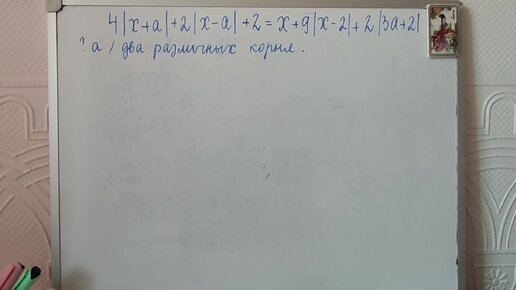 4|x+a|+2|x-a|+2=x+9|x-2|+2|3a+2|
? a / два различных корня.